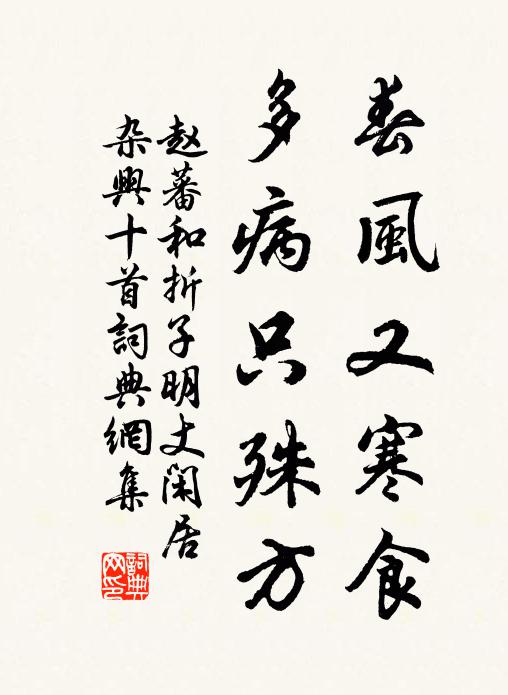 春風又寒食
多病只殊方
赵蕃和折子明丈閑居
杂興十首詞典網集
詞典网印